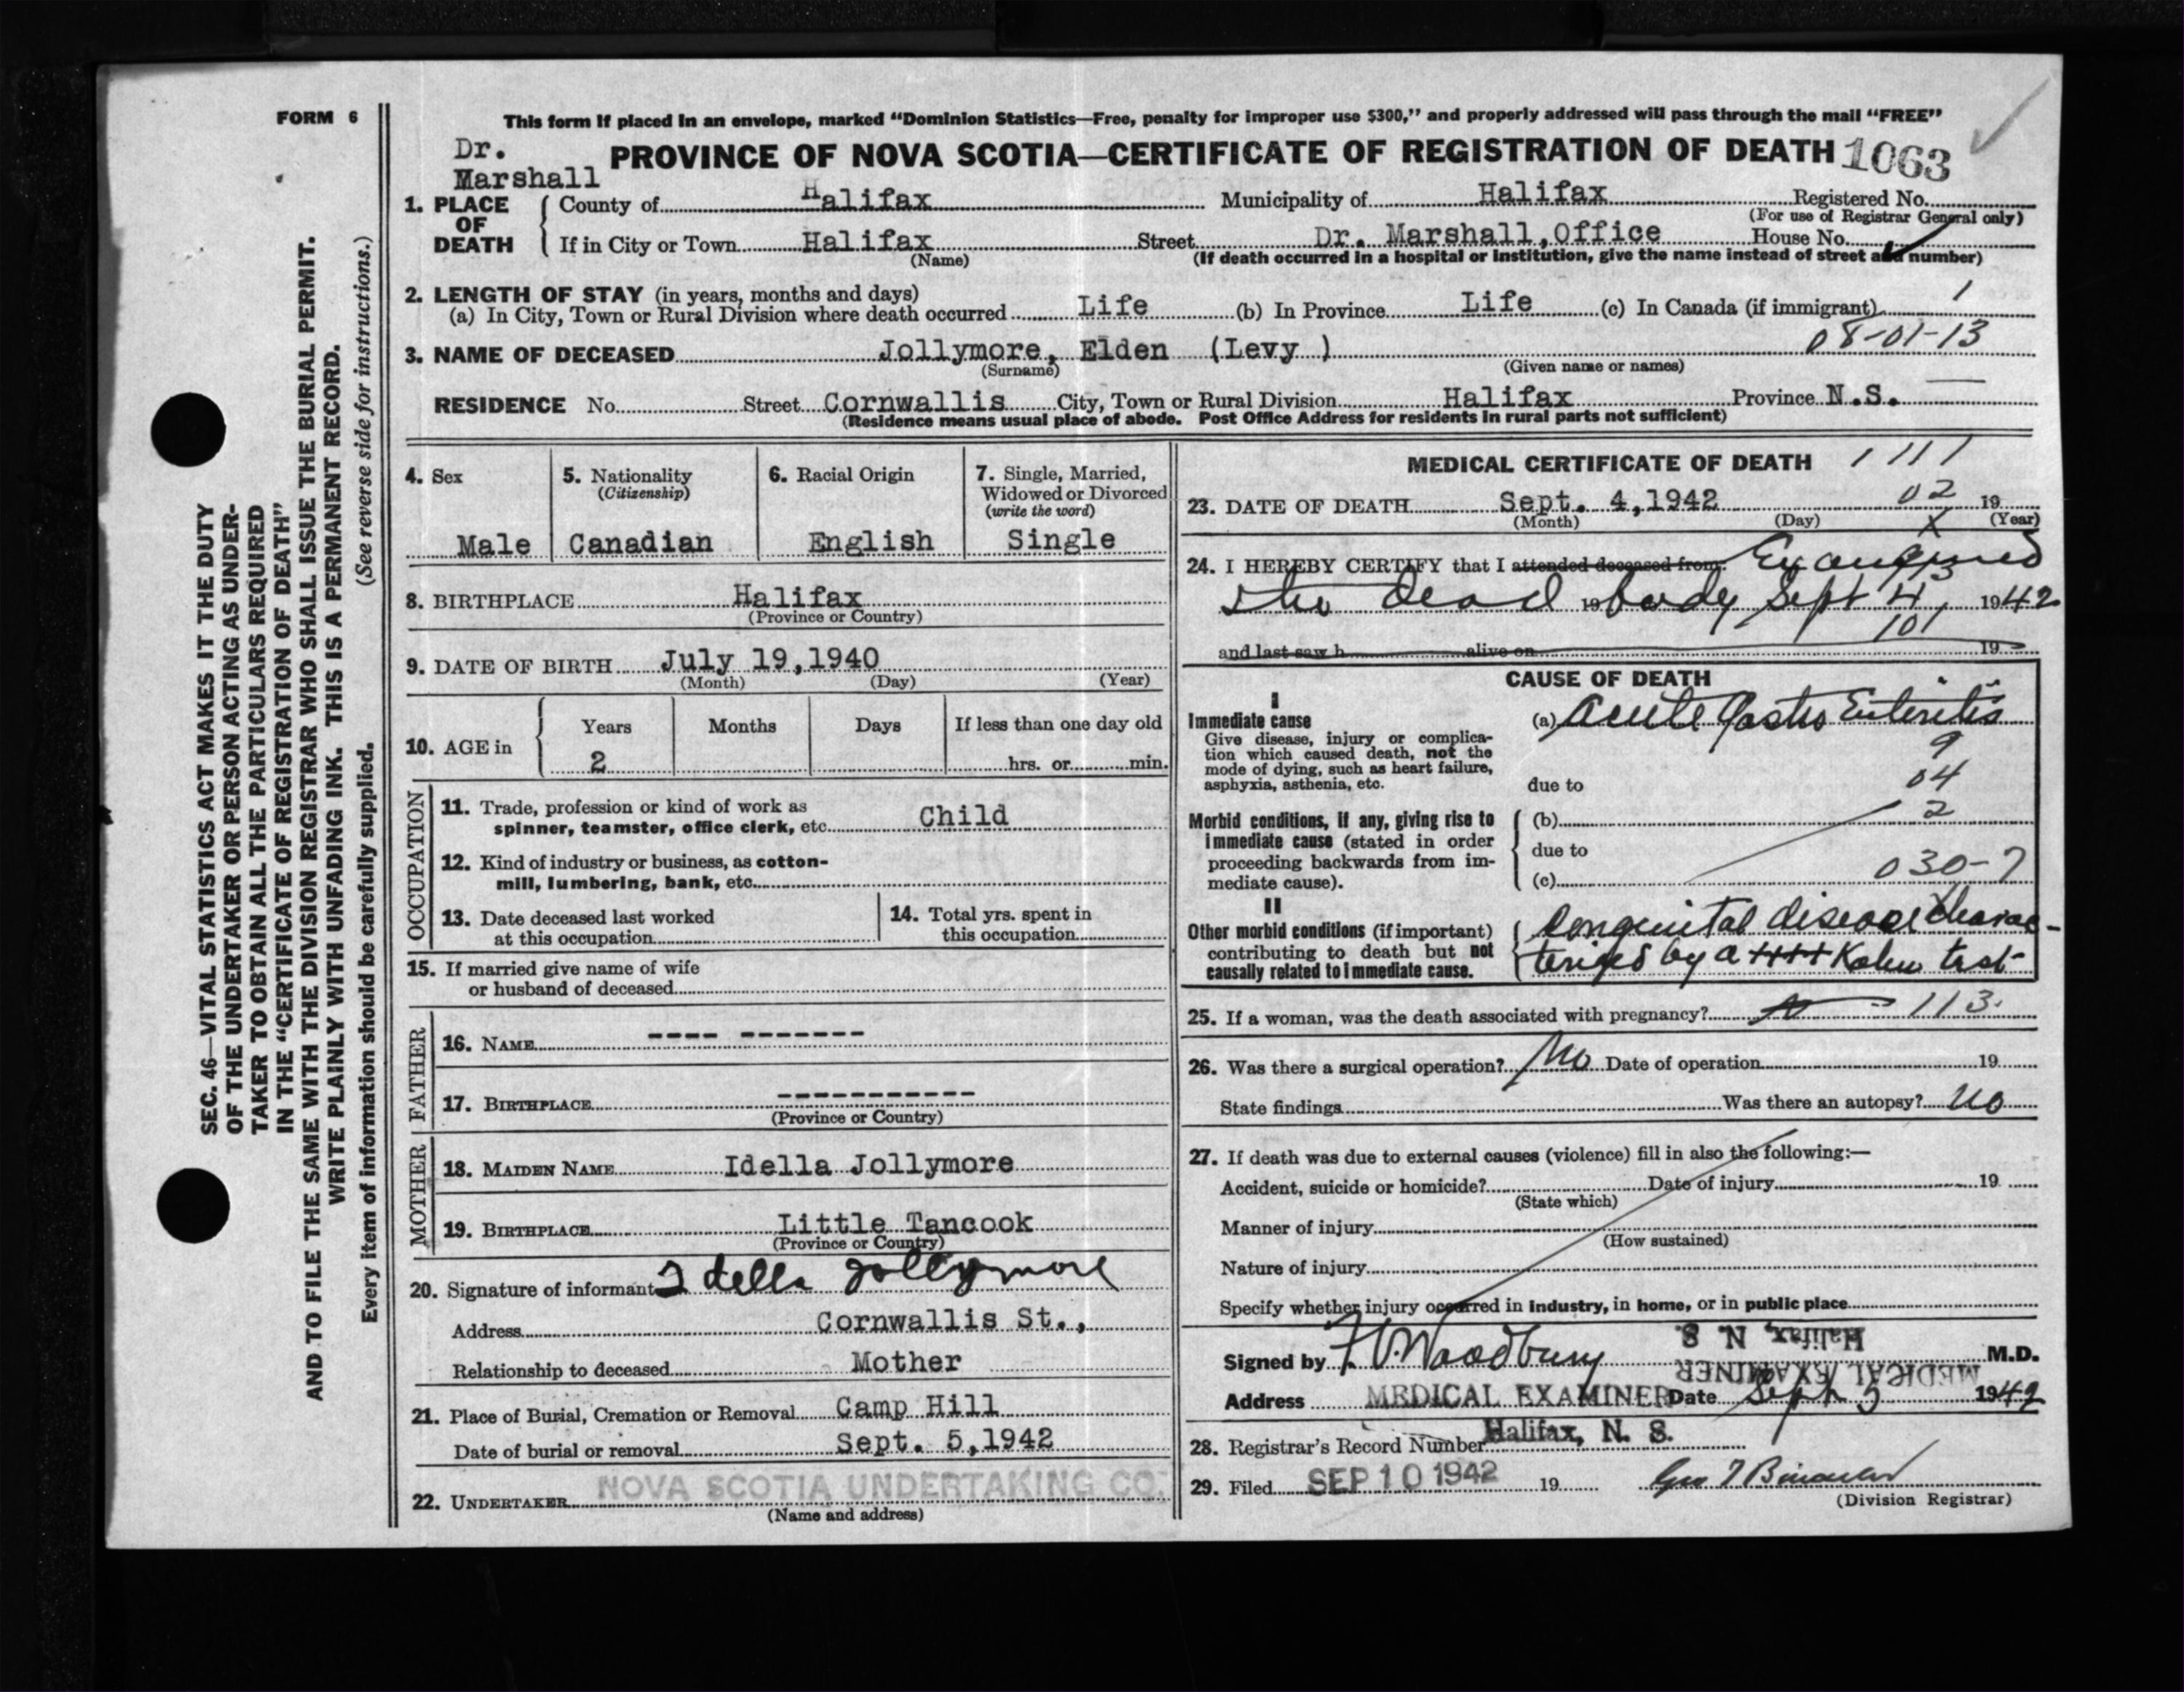 FORM 6
SEC. 46—VITAL STATISTICS ACT MAKES IT THE DUTY
OF THE UNDERTAKER OR PERSON ACTING AS UNDER-
TAKER TO OBTAIN ALL THE PARTICULARS REQUIRED
IN THE "CERTIFICATE OF REGISTRATION OF DEATH"
AND TO FILE THE SAME WITH THE DIVISION REGISTRAR WHO SHALL ISSUE THE BURIAL PERMIT.
WRITE PLAINLY WITH UNFADING INK. THIS IS A PERMANENT RECORD.
Every item of information should be carefully supplied. (See reverse side for instructions.)
This form if placed in an envelope, marked "Dominion Statistics—Free, penalty for improper use $300," and properly addressed will pass through the mail "FREE"
Dr.
Marshall
PROVINCE OF NOVA SCOTIA—CERTIFICATE OF REGISTRATION OF DEATH 1063
1. PLACE OF DEATH
County of Halifax Municipality of Halifax Registered No.
(For use of Registrar General only)
If in City or Town Halifax Street Dr. Marshall,Office House No.
(Name) (If death occurred in a hospital or institution, give the name instead of street and number)
2. LENGTH OF STAY (in years, months and days)
(a) In City, Town or Rural Division where death occurred Life (b) In Province Life (c) In Canada (if immigrant) 1
3. NAME OF DECEASED Jollymore, Elden (Levy ) 08-01-13
(Surname) (Given name or names)
RESIDENCE No. Street Cornwallis City, Town or Rural Division Halifax Province N.S.
(Residence means usual place of abode. Post Office Address for residents in rural parts not sufficient)
4. Sex
Male
5. Nationality
(Citizenship)
Canadian
6. Racial Origin
English
7. Single, Married,
Widowed or Divorced
(write the word)
Single
8. BIRTHPLACE Halifax
(Province or Country)
9. DATE OF BIRTH July 19,1940
(Month) (Day) (Year)
10. AGE in
Years Months Days If less than one day old
2 hrs. or min.
OCCUPATION
11. Trade, profession or kind of work as
spinner, teamster, office clerk, etc. Child
12. Kind of industry or business, as cotton-
mill, lumbering, bank, etc.
13. Date deceased last worked
at this occupation
14. Total yrs. spent in
this occupation
15. If married give name of wife
or husband of deceased
FATHER
16. NAME ---- -------
17. BIRTHPLACE -----------
(Province or Country)
MOTHER
18. MAIDEN NAME Idella Jollymore
19. BIRTHPLACE Little Tancook
(Province or Country)
20. Signature of informant Idella Jollymore
Address Cornwallis St.,
Relationship to deceased Mother
21. Place of Burial, Cremation or Removal Camp Hill
Date of burial or removal Sept. 5,1942
22. UNDERTAKER NOVA SCOTIA UNDERTAKING CO.
(Name and address)
MEDICAL CERTIFICATE OF DEATH 1 111
23. DATE OF DEATH Sept. 4,1942 02 19
(Month) (Day) X (Year)
24. I HEREBY CERTIFY that I attended deceased from Examined
the dead 19 body Sept 4, 1942
101
and last saw h alive on 19
CAUSE OF DEATH
I
Immediate cause
Give disease, injury or complica-
tion which caused death, not the
mode of dying, such as heart failure,
asphyxia, asthenia, etc.
(a) Acute Gastro Enteritis
9
due to 04
Morbid conditions, if any, giving rise to
immediate cause (stated in order
proceeding backwards from im-
mediate cause).
(b) 2
due to
(c) 030-7
II
Other morbid conditions (if important)
contributing to death but not
causally related to immediate cause.
Congenital disease charac-
terized by a ++++ Kahn test
25. If a woman, was the death associated with pregnancy? 113.
26. Was there a surgical operation? No Date of operation 19
State findings Was there an autopsy? No
27. If death was due to external causes (violence) fill in also the following:—
Accident, suicide or homicide? Date of injury 19
(State which)
Manner of injury
(How sustained)
Nature of injury
Specify whether injury occurred in industry, in home, or in public place
Signed by F.V. Woodbury M.D.
MEDICAL EXAMINER
Halifax, N. S.
Address MEDICAL EXAMINER Date Sept 5 1942
Halifax, N. S.
28. Registrar's Record Number
29. Filed SEP 10 1942 19
(Division Registrar)